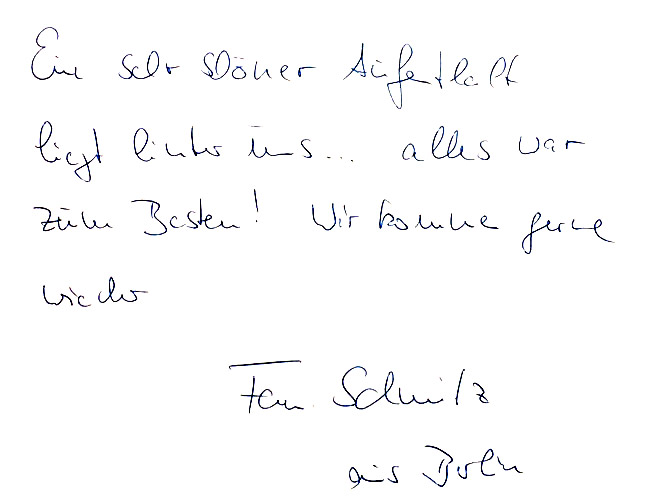 Ein sehr schöner Aufenthalt
liegt hinter uns... alles war
zum Besten! Wir komme gerne
wieder
Fam. Schmitz
aus